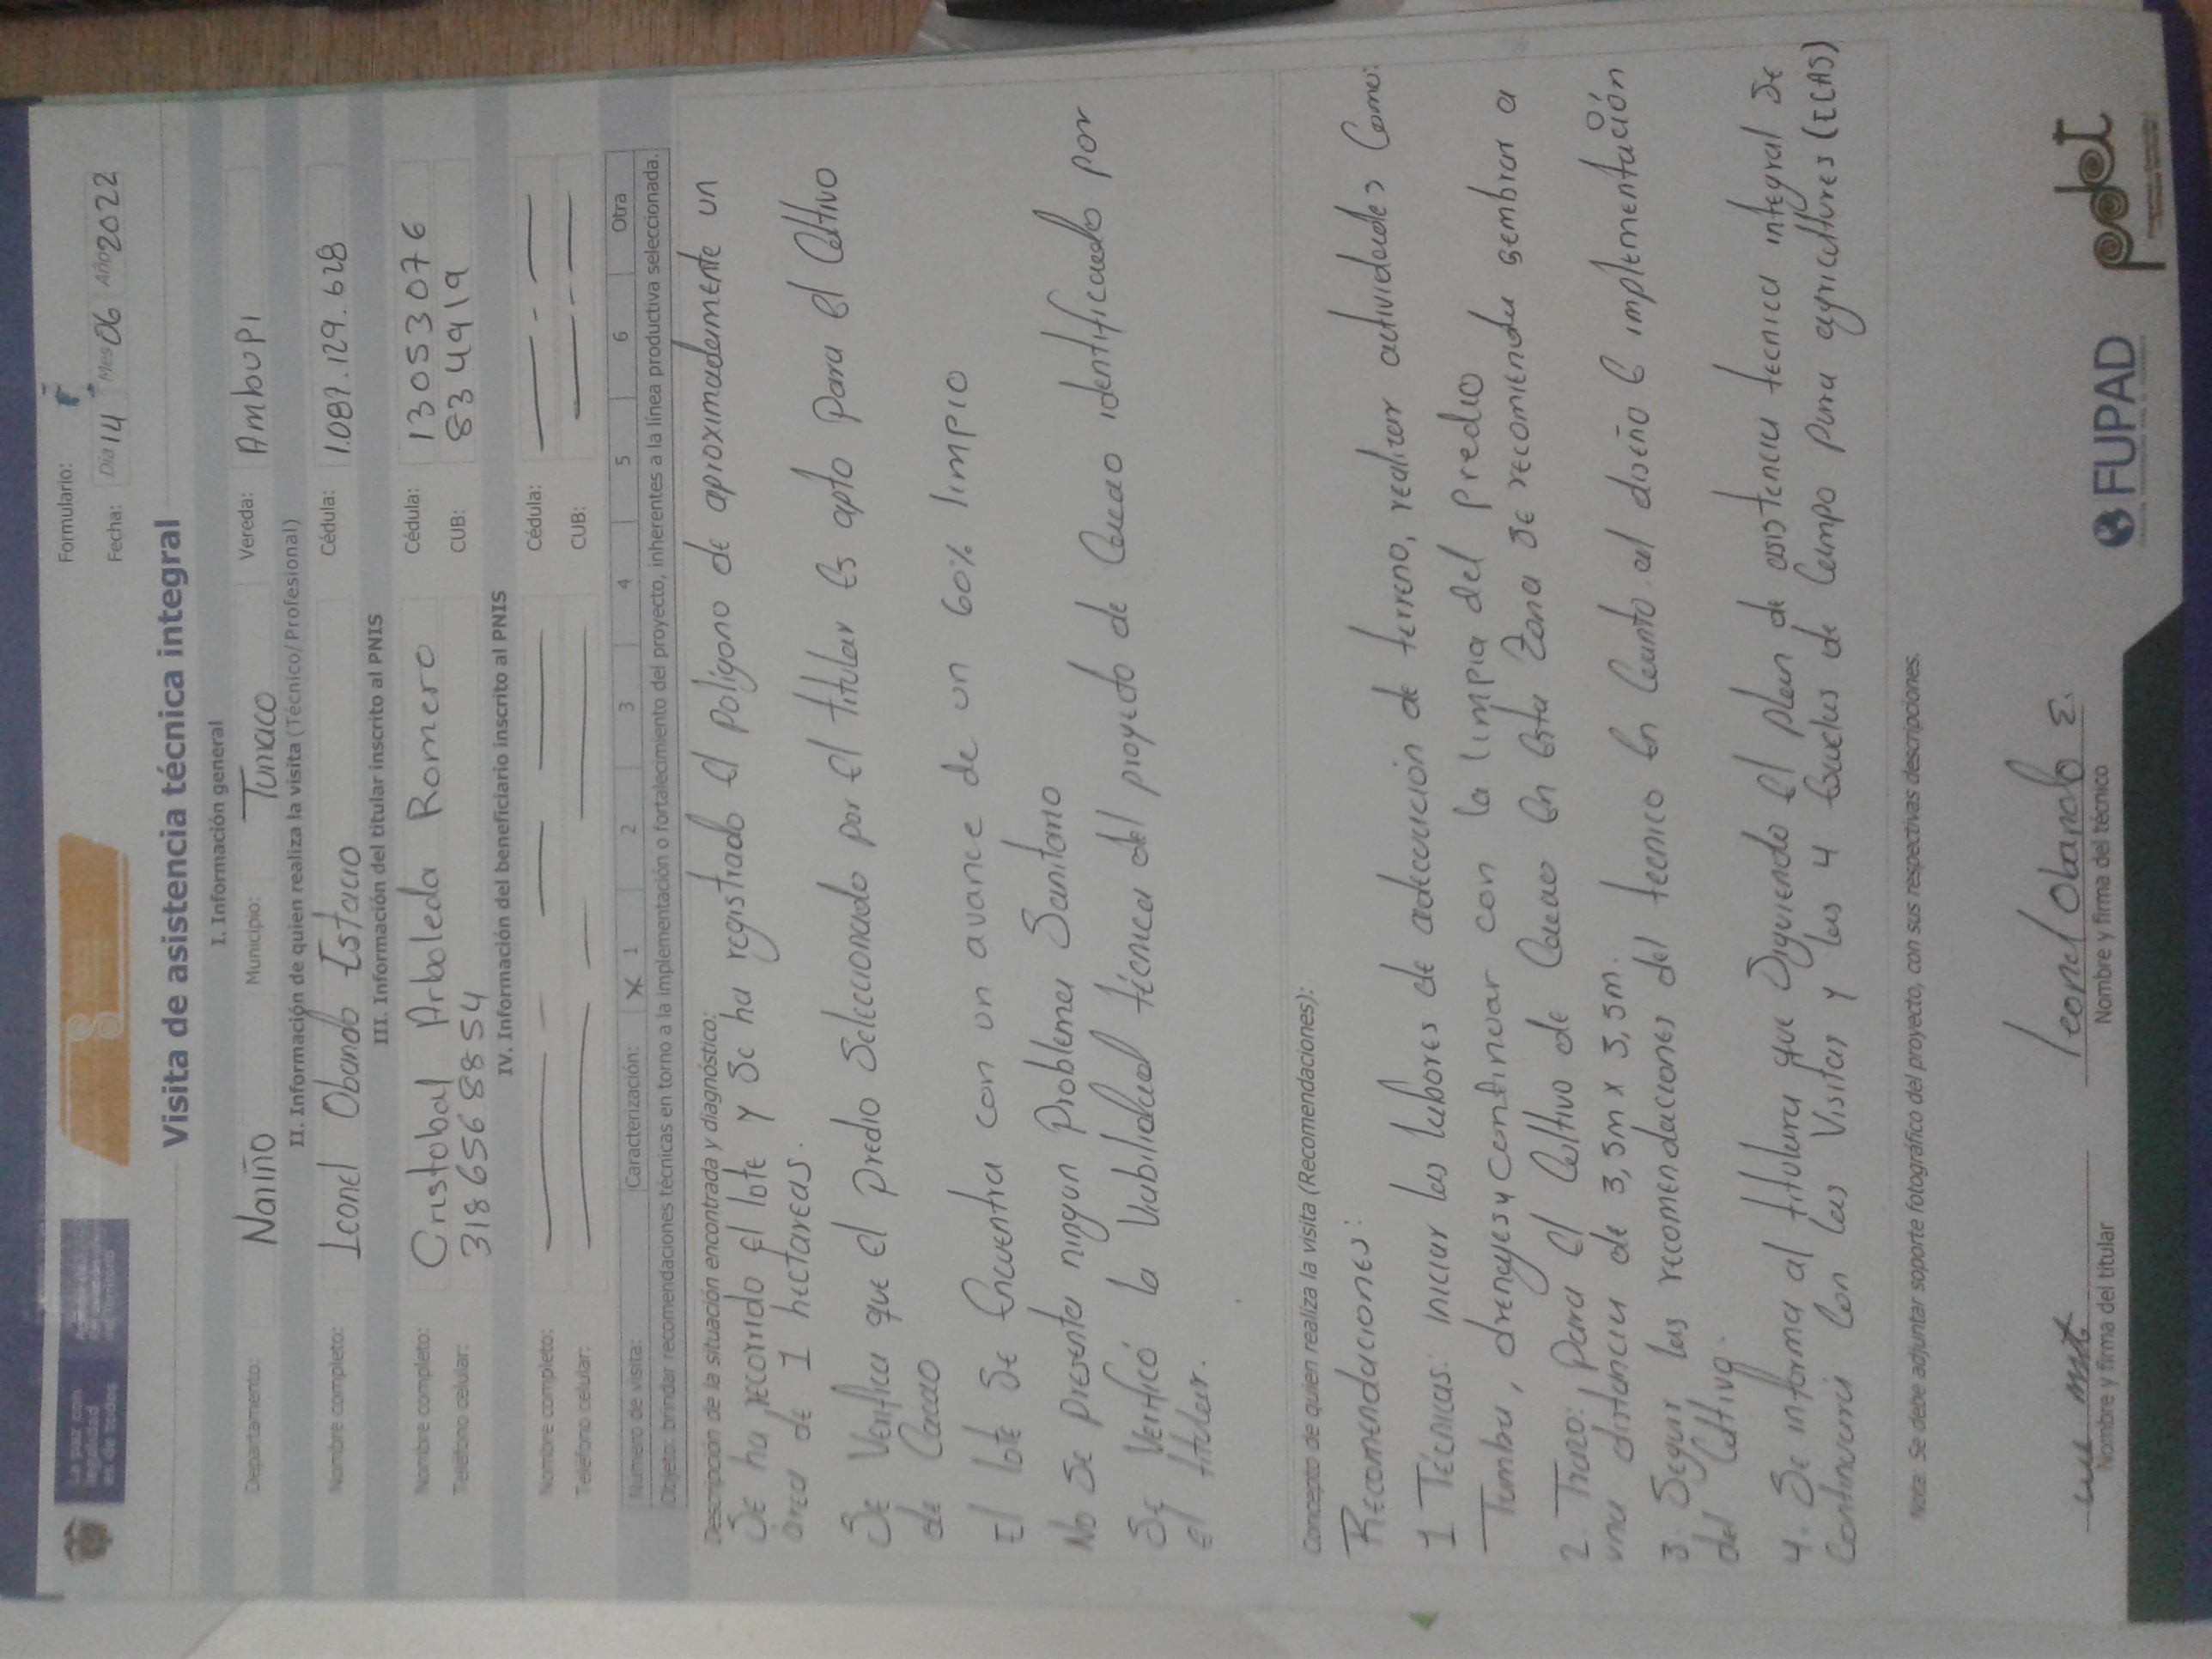 La paz con
legalidad
es de todos
Formulario:
Fecha: Día 14 Mes 06 Año 2022
Visita de asistencia técnica integral
I. Información general
Departamento: Nariño Municipio: Tumaco Vereda: Ambupi
II. Información de quien realiza la visita (Técnico/ Profesional)
Nombre completo: Leonel Obando Estacio Cédula: 1.089.129.628
III. Información del titular inscrito al PNIS
Nombre completo: Cristobal Arboleda Romero Cédula: 13053076
Teléfono celular: 3186568854 CUB: 834919
IV. Información del beneficiario inscrito al PNIS
Nombre completo: Cédula:
Teléfono celular: CUB:
Número de visita: Caracterización: X 1 2 3 4 5 6 Otra
Objeto: brindar recomendaciones técnicas en torno a la implementación o fortalecimiento del proyecto, inherentes a la línea productiva seleccionada.
Descripción de la situación encontrada y diagnóstico:
Se ha recorrido el lote y se ha registrado el polígono de aproximadamente un
area de 1 hectareas.
Se verifica que el predio seleccionado por el titular es apto para el cultivo
de Cacao
El lote se encuentra con un avance de un 60% limpio
No se presenta ningun problema sanitario
Se verificó la viabilidad técnica del proyecto de cacao identificado por
el titular.
Concepto de quien realiza la visita (Recomendaciones):
Recomendaciones:
1 Técnicas: iniciar las labores de adecuación de terreno, realizar actividades como:
Tumba, drenajes y continuar con la limpia del predio
2. Trazo: para el cultivo de cacao en esta zona se recomienda sembrar a
una distancia de 3,5m x 3,5m.
3. Seguir las recomendaciones del tecnico en cuanto al diseño e implementación
del cultivo.
4. Se informa al titular que siguiendo el plan de asistencia tecnica integral se
continuará con las visitas y las 4 Escuelas de campo para agricultores (ECAS)
Nota: Se debe adjuntar soporte fotográfico del proyecto, con sus respectivas descripciones.
Leonel Obando E.
Nombre y firma del titular Nombre y firma del técnico
FUPAD
pdet